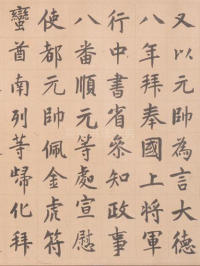 又以元帥為言大德
八年拜奉國上將軍
行中書省叅知政事
八番順元等處宣慰
使都元帥佩金虎符
蠻酋南列等歸化拜